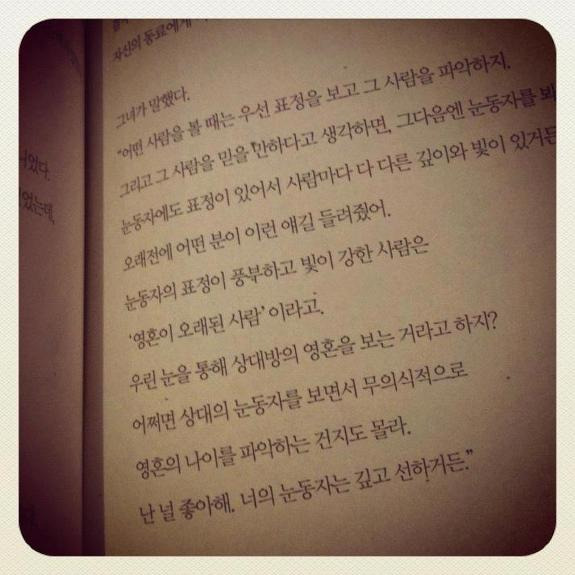 자신의 동료에게
그녀가 말했다.
"어떤 사람을 볼 때는 우선 표정을 보고 그 사람을 파악하지.
그리고 그 사람을 믿을 만하다고 생각하면, 그다음엔 눈동자를 봐
눈동자에도 표정이 있어서 사람마다 다 다른 깊이와 빛이 있거든
오래전에 어떤 분이 이런 얘길 들려줬어.
눈동자의 표정이 풍부하고 빛이 강한 사람은
'영혼이 오래된 사람' 이라고.
우린 눈을 통해 상대방의 영혼을 보는 거라고 하지?
어쩌면 상대의 눈동자를 보면서 무의식적으로
영혼의 나이를 파악하는 건지도 몰라.
난 널 좋아해. 너의 눈동자는 깊고 선하거든."